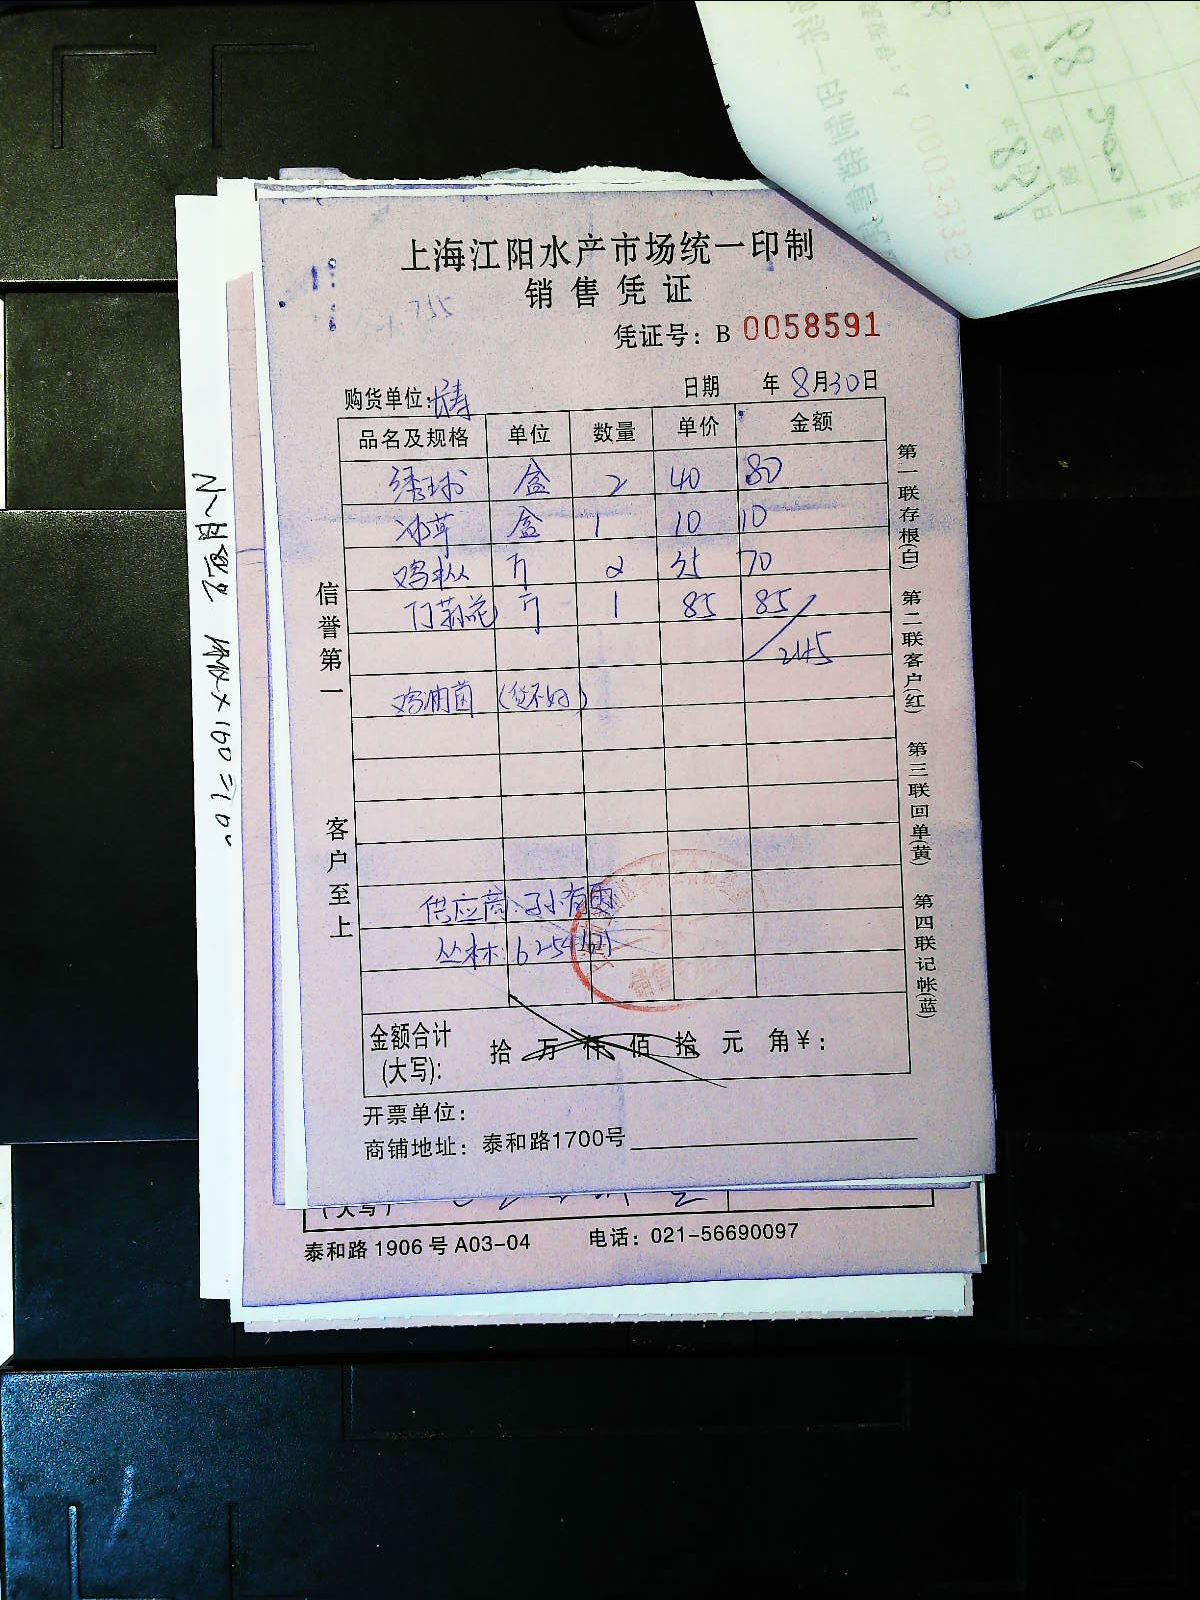 上海江阳水产市场统一印制
销售凭证
凭证号：B 0058591
购货单位： 日期 年8月30日
品名及规格 单位 数量 单价 金额
绣球 盒 2 40 80
冰草 盒 1 10 10
鸡枞 斤 2 35 70
斤 1 85 85
245
鸡油菌（货不好）
供应商：孙有
丛林：6254
金额合计
(大写)： 拾万仟佰拾元角￥：
开票单位：
商铺地址：泰和路1700号
信誉第一
客户至上
第一联存根(白) 第二联客户(红) 第三联回单(黄) 第四联记帐(蓝)
(大写)
泰和路1906号A03-04 电话：021-56690097